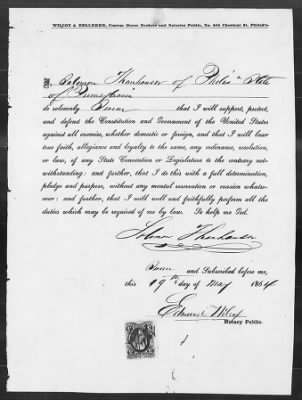 WILTON & ZELLEKER, Custom House Brokers and Notaries Public, No. 404 Chestnut St. Philad'a.
I, Solomon Thanhauser of Philada State
of Pennsylvania
do solemnly Swear that I will support, protect,
and defend the Constitution and Government of the United States
against all enemies, whether domestic or foreign, and that I will bear
true faith, allegiance and loyalty to the same, any ordinance, resolution,
or law, of any State Convention or Legislature to the contrary not-
withstanding: and further, that I do this with a full determination,
pledge and purpose, without any mental reservation or evasion whatso-
ever: and further, that I will well and faithfully perform all the
duties which may be required of me by law. So help me God.
Solomon Thanhauser
Sworn and Subscribed before me,
this 19th day of May 1864
Edmund Wilcox
Notary Public.